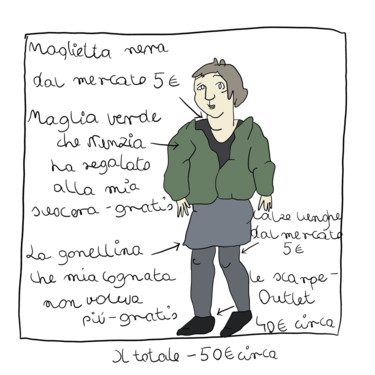 Maglietta nera
dal mercato 5€
Maglia verde
che Nunzia
ha regalato
alla mia
suocera - gratis
La gonellina
che mia cognata
non voleva
più - gratis
Calze lunghe
dal mercato
5€
le scarpe -
Outlet
40€ circa
Il totale - 50€ circa